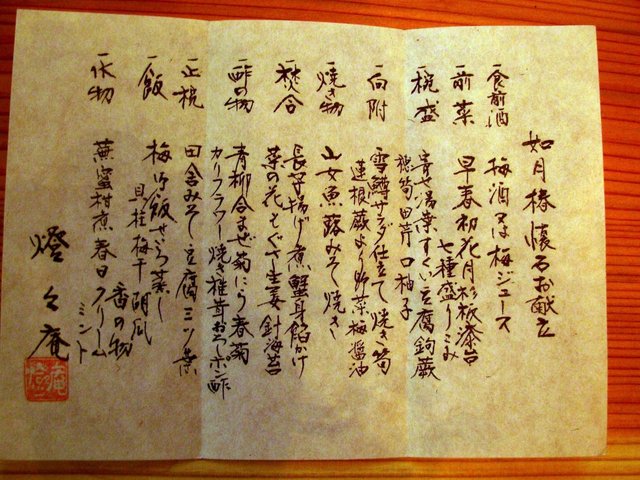 如月椿懐石お献立
一食前酒 梅酒又は梅ジュース
一前菜 早春初花月杉板漆台
七種盛りこみ
一椀盛 寄せ湯葉すくい豆腐鉤蕨
穂筍田芹口柚子
一向附 雪鱒サラダ仕立て焼き筍
蓮根蕨より野菜梅醤油
一焼き物 山女魚蕗みそ焼き
一焚合 長芋揚げ煮蟹身餡かけ
菜の花もぐさ生姜針海苔
一酢の物 青柳合まぜ菊にら春菊
カリフラワー焼き椎茸おろしポン酢
一止椀 田舎みそ豆腐三ツ葉
一飯 梅御飯せいろ蒸し
貝柱梅干防風
香の物
一水物 蕉蜜柑煮春日クリーム
ミント
燈々庵